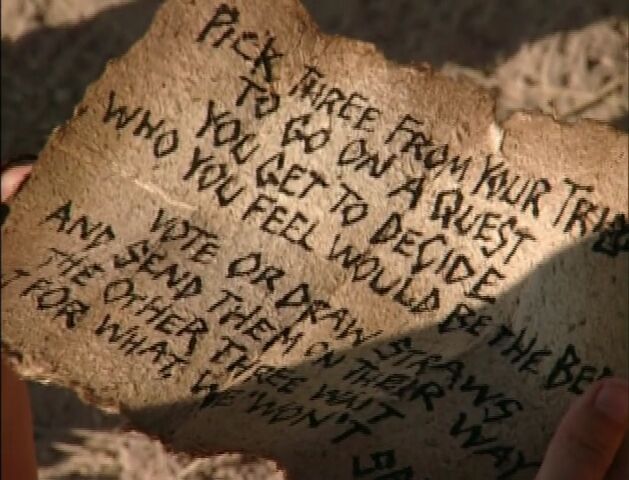 PICK THREE FROM YOUR TRIB
TO GO ON A QUEST
YOU GET TO DECIDE
WHO YOU FEEL WOULD BE THE BE
VOTE OR DRAW STRAWS
AND SEND THEM ON THEIR WAY
THE OTHER THREE WAIT
T FOR WHAT, WE WON'T